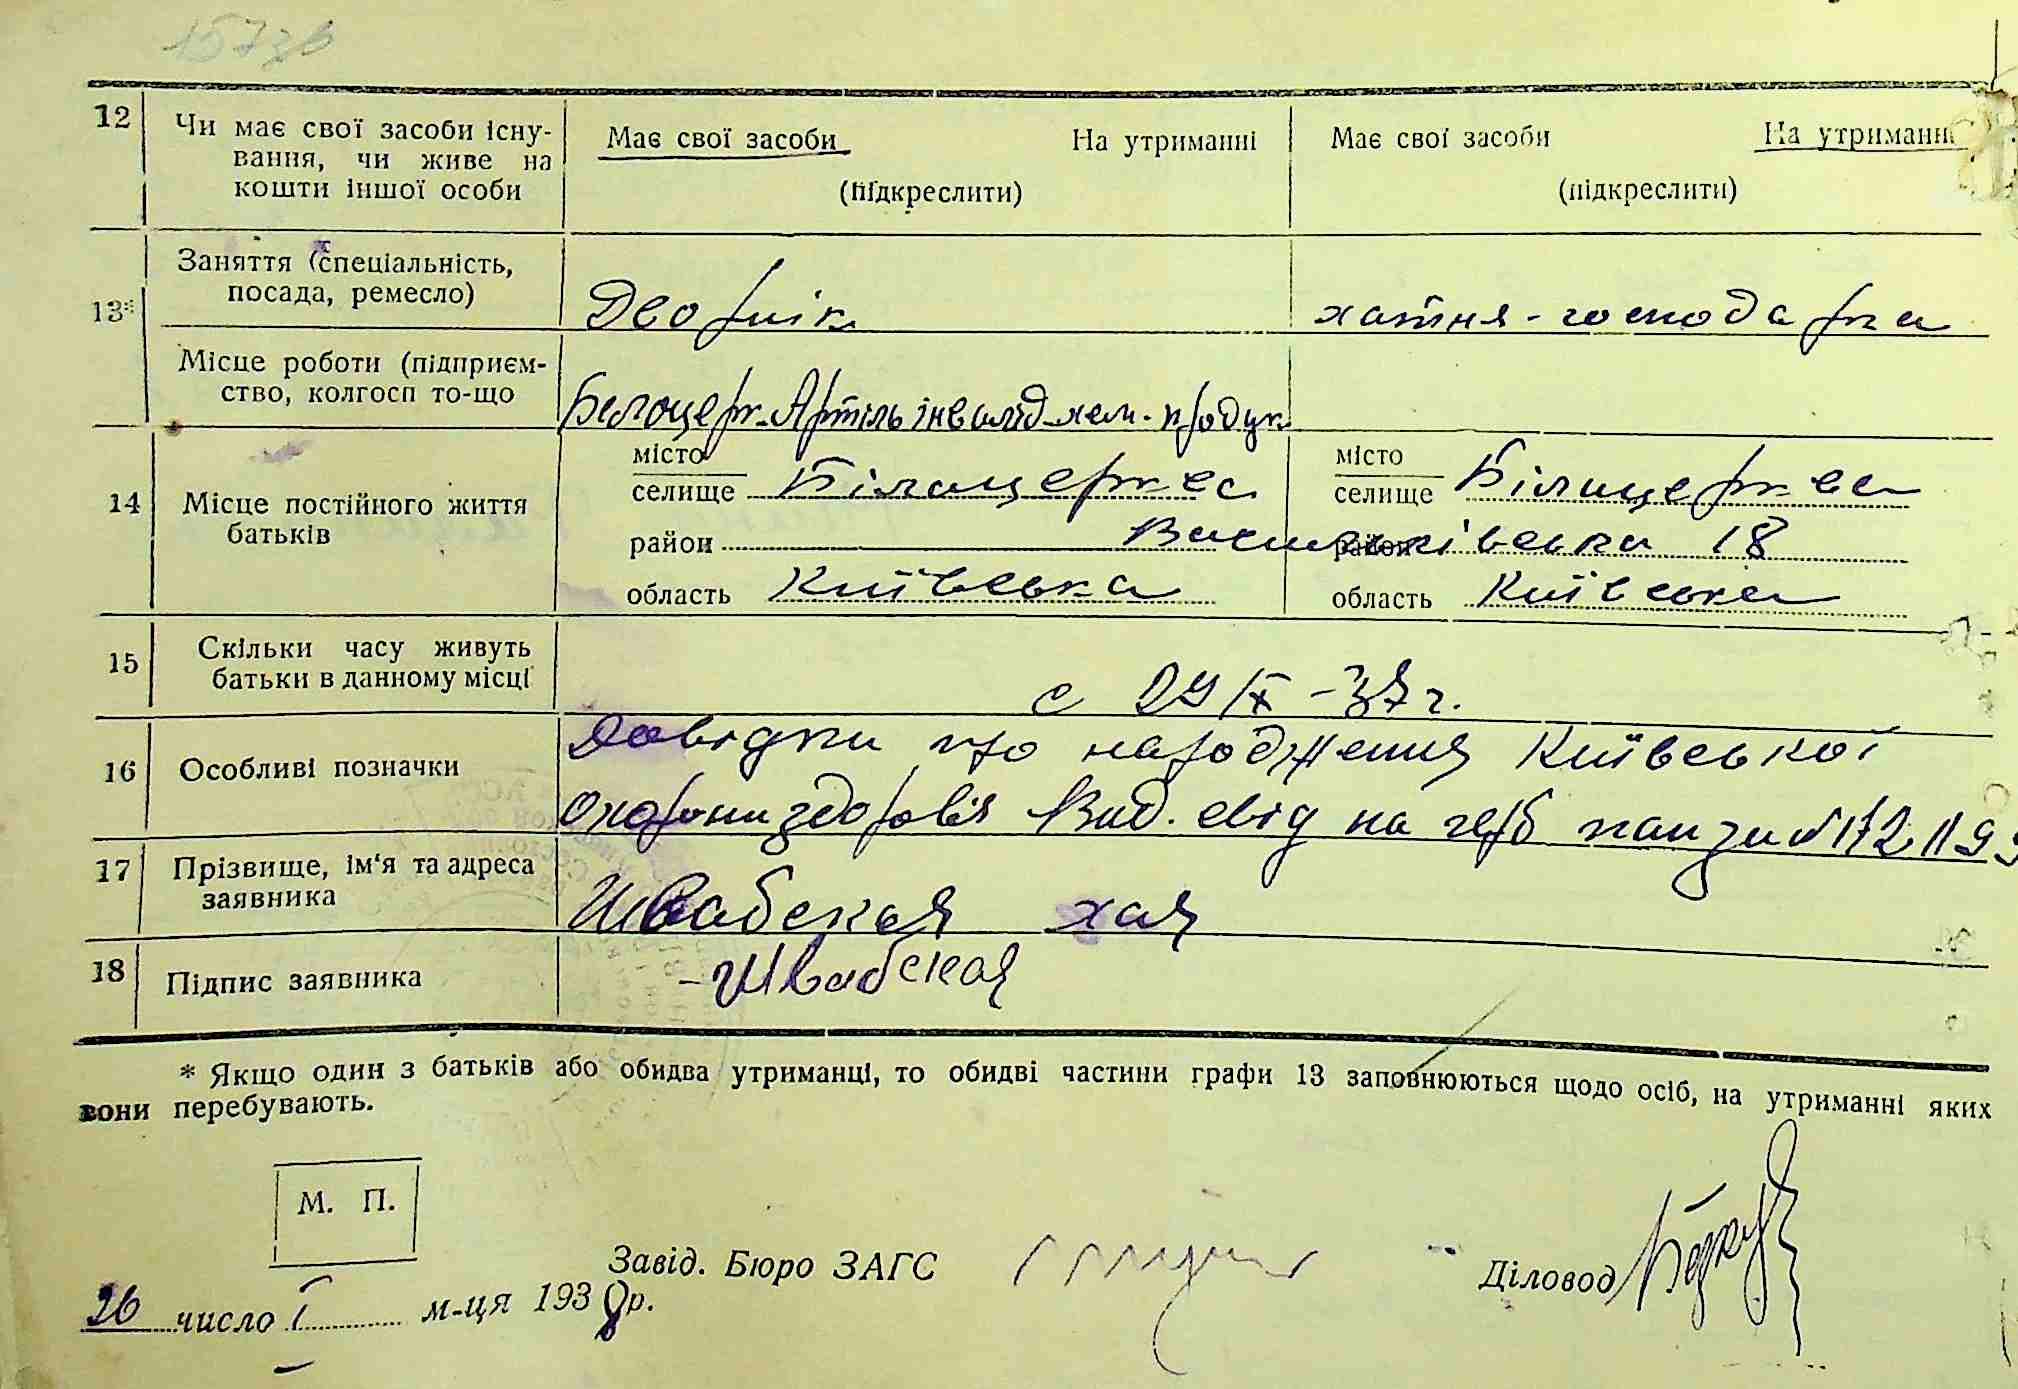 157зв
12
Чи має свої засоби існу-
вання, чи живе на
кошти іншої особи
Має свої засоби На утриманні
(підкреслити)
Має свої засоби На утриманні
(підкреслити)
13*
Заняття (спеціальність,
посада, ремесло)
Двофнік
хатня-господарка
Місце роботи (підприєм-
ство, колгосп то-що
Білоцерк. Артіль інвалід
14
Місце постійного життя
батьків
місто
селище Білацерква
район
область Київська
місто
селище Білацерква
район Васильківська 18
область Київська
15
Скільки часу живуть
батьки в данному місці
с 29/IX-37 г.
16
Особливі позначки
Довідки про народження Київської
Охорони здоровія Вид. свід на герб
17
Прізвище, ім'я та адреса
заявника
Швабская Хая
18
Підпис заявника
Швабская
* Якщо один з батьків або обидва утриманці, то обидві частини графи 13 заповнюються щодо осіб, на утриманні яких
вони перебувають.
М. П.
Завід. Бюро ЗАГС
Діловод
26 число I м-ця 1938 р.